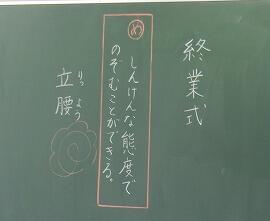 終業式
め
しんけんな態度で
のぞむことができる。
立腰
りつよう